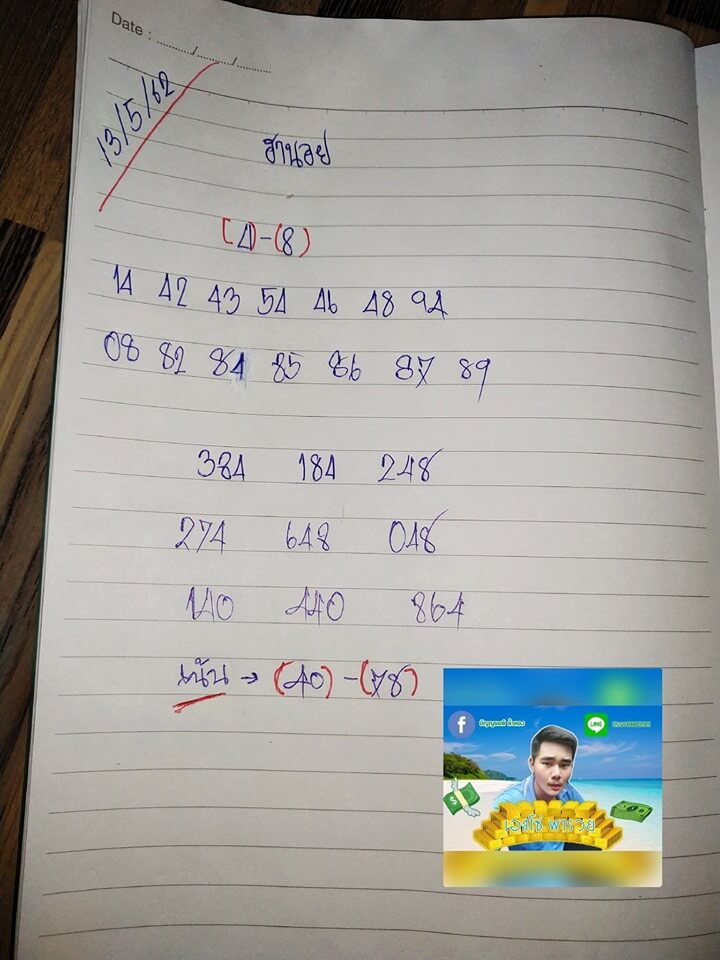 Date : ....../....../......
13/5/62
ฮานอย
(4)-(8)
14 42 43 54 46 48 94
08 82 84 85 86 87 89
384 184 248
274 648 048
140 440 864
เน้น → (40) - (78)
f
LINE
เฮคโซ่ พารวย